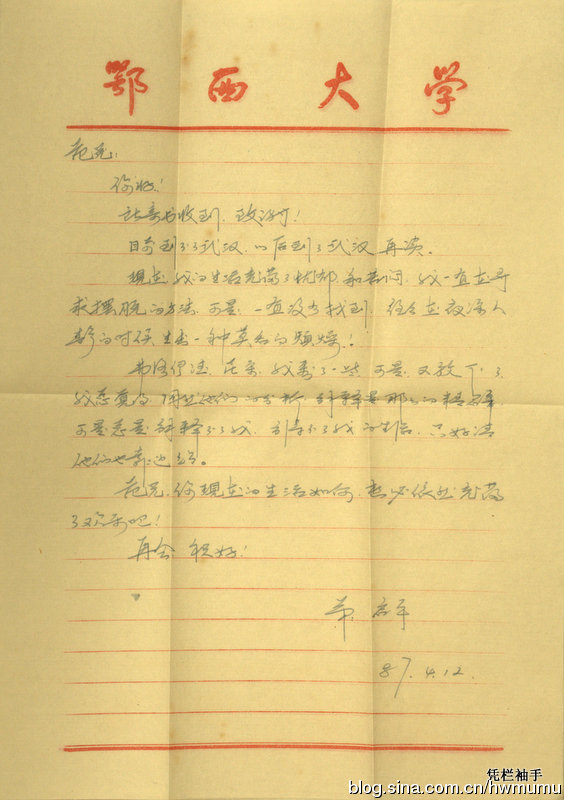 鄂西大学
范兄:
你好!
计寄书收到,致谢!
目前到不了武汉,以后到了武汉再谈。
现在我的生活充满了忧郁和苦闷,我一直在寻
求摆脱的方法,可是,一直没有找到,往往在夜深人
静的时候,生出一种莫名的烦燥!
弗洛伊德,尼采,我看了一些,可是,又放下了,
我总觉得他们的分析,解释是那么的精辟
可是总是解释不了我,引导不了我的生活,只好请
他们也靠边站。
范兄,你现在的生活如何,想必依然充满
了欢乐吧!
再会 祝好!
弟
87.4.12.
凭栏袖手
blog.sina.com.cn/hwmumu